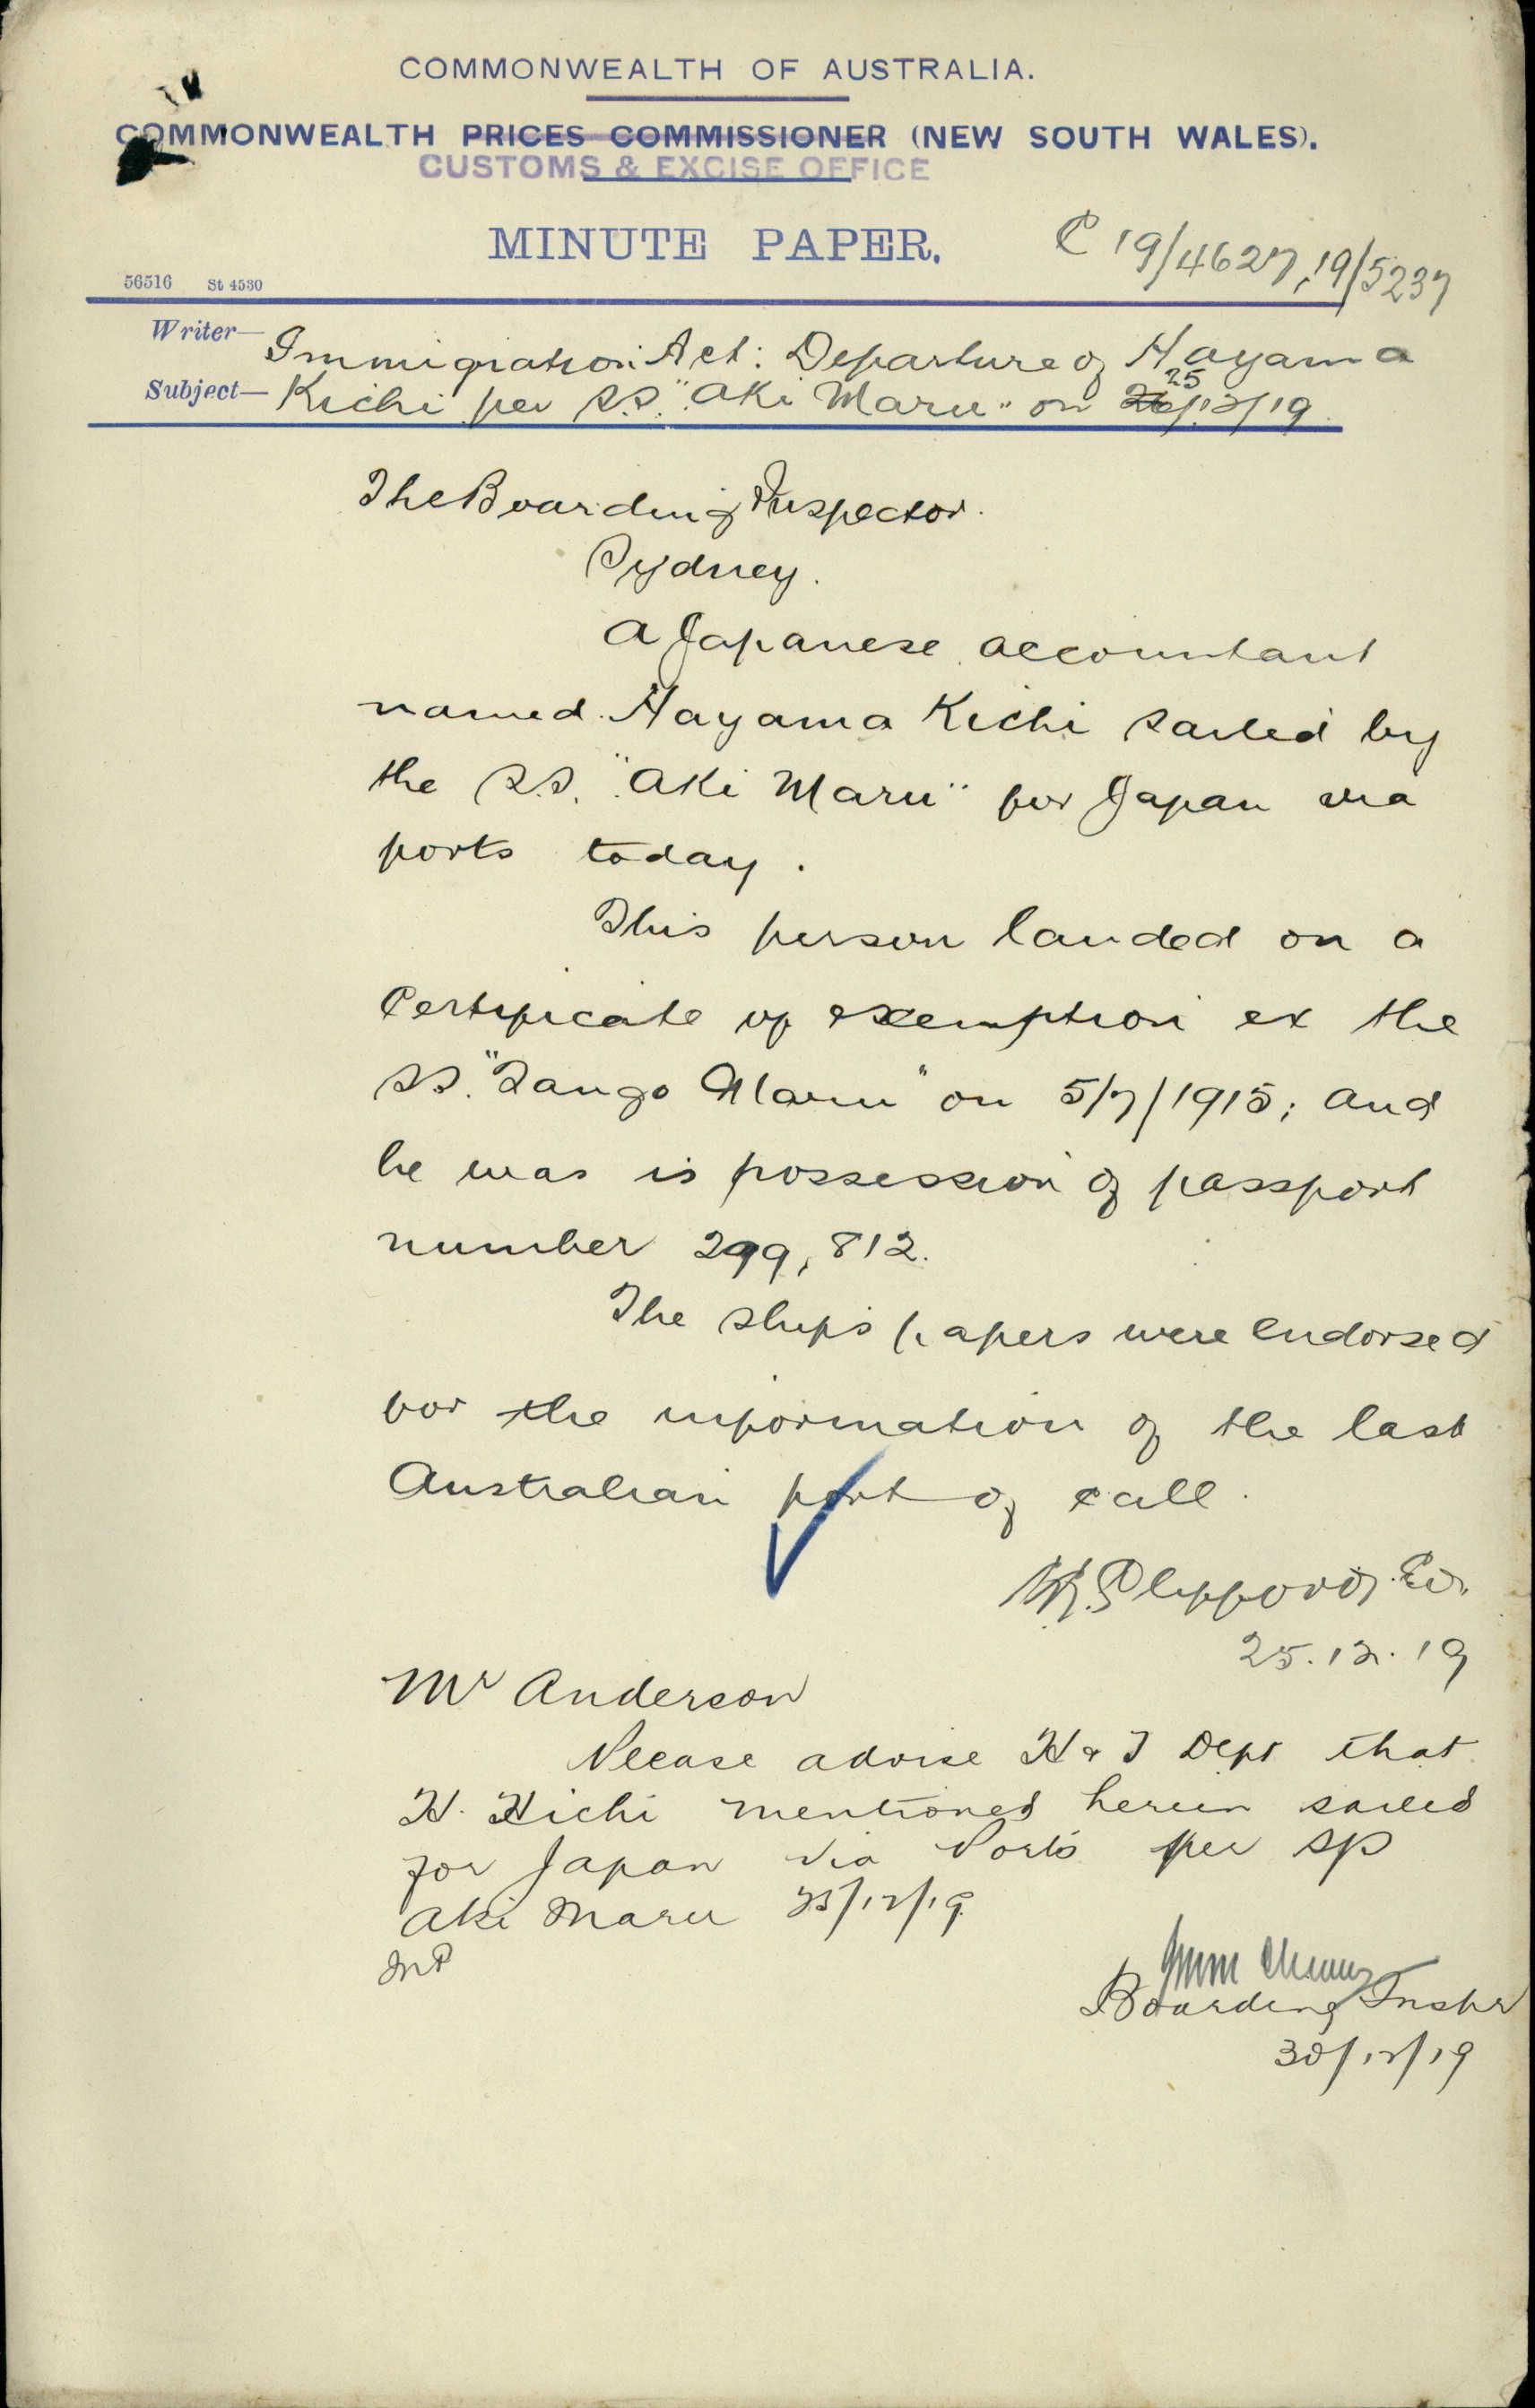 COMMONWEALTH OF AUSTRALIA.
COMMONWEALTH PRICES COMMISSIONER (NEW SOUTH WALES).
CUSTOMS & EXCISE OFFICE
MINUTE PAPER.
C 19/4627, 19/5237
56516 St 4530
Writer—
Immigration Act: Departure of Hayama
Subject—
Kichi per S.S. "Aki Maru" on 26/12/19
25
The Boarding Inspector.
Sydney.
A Japanese accountant
named Hayama Kichi sailed by
the S.S. "Aki Maru" for Japan via
ports today.
This person landed on a
Certificate of exemption ex the
S.S. "Tango Maru" on 5/7/1915; and
he was is possession of passport
number 299,812.
The ship's papers were endorsed
for the information of the last
Australian port of call.
Clifford
25.12.19
Mr Anderson
Please advise H & T Dept that
H. Kichi mentioned herein sailed
for Japan via Ports per SS
Aki Maru 25/12/19
Boarding Inspr
30/12/19